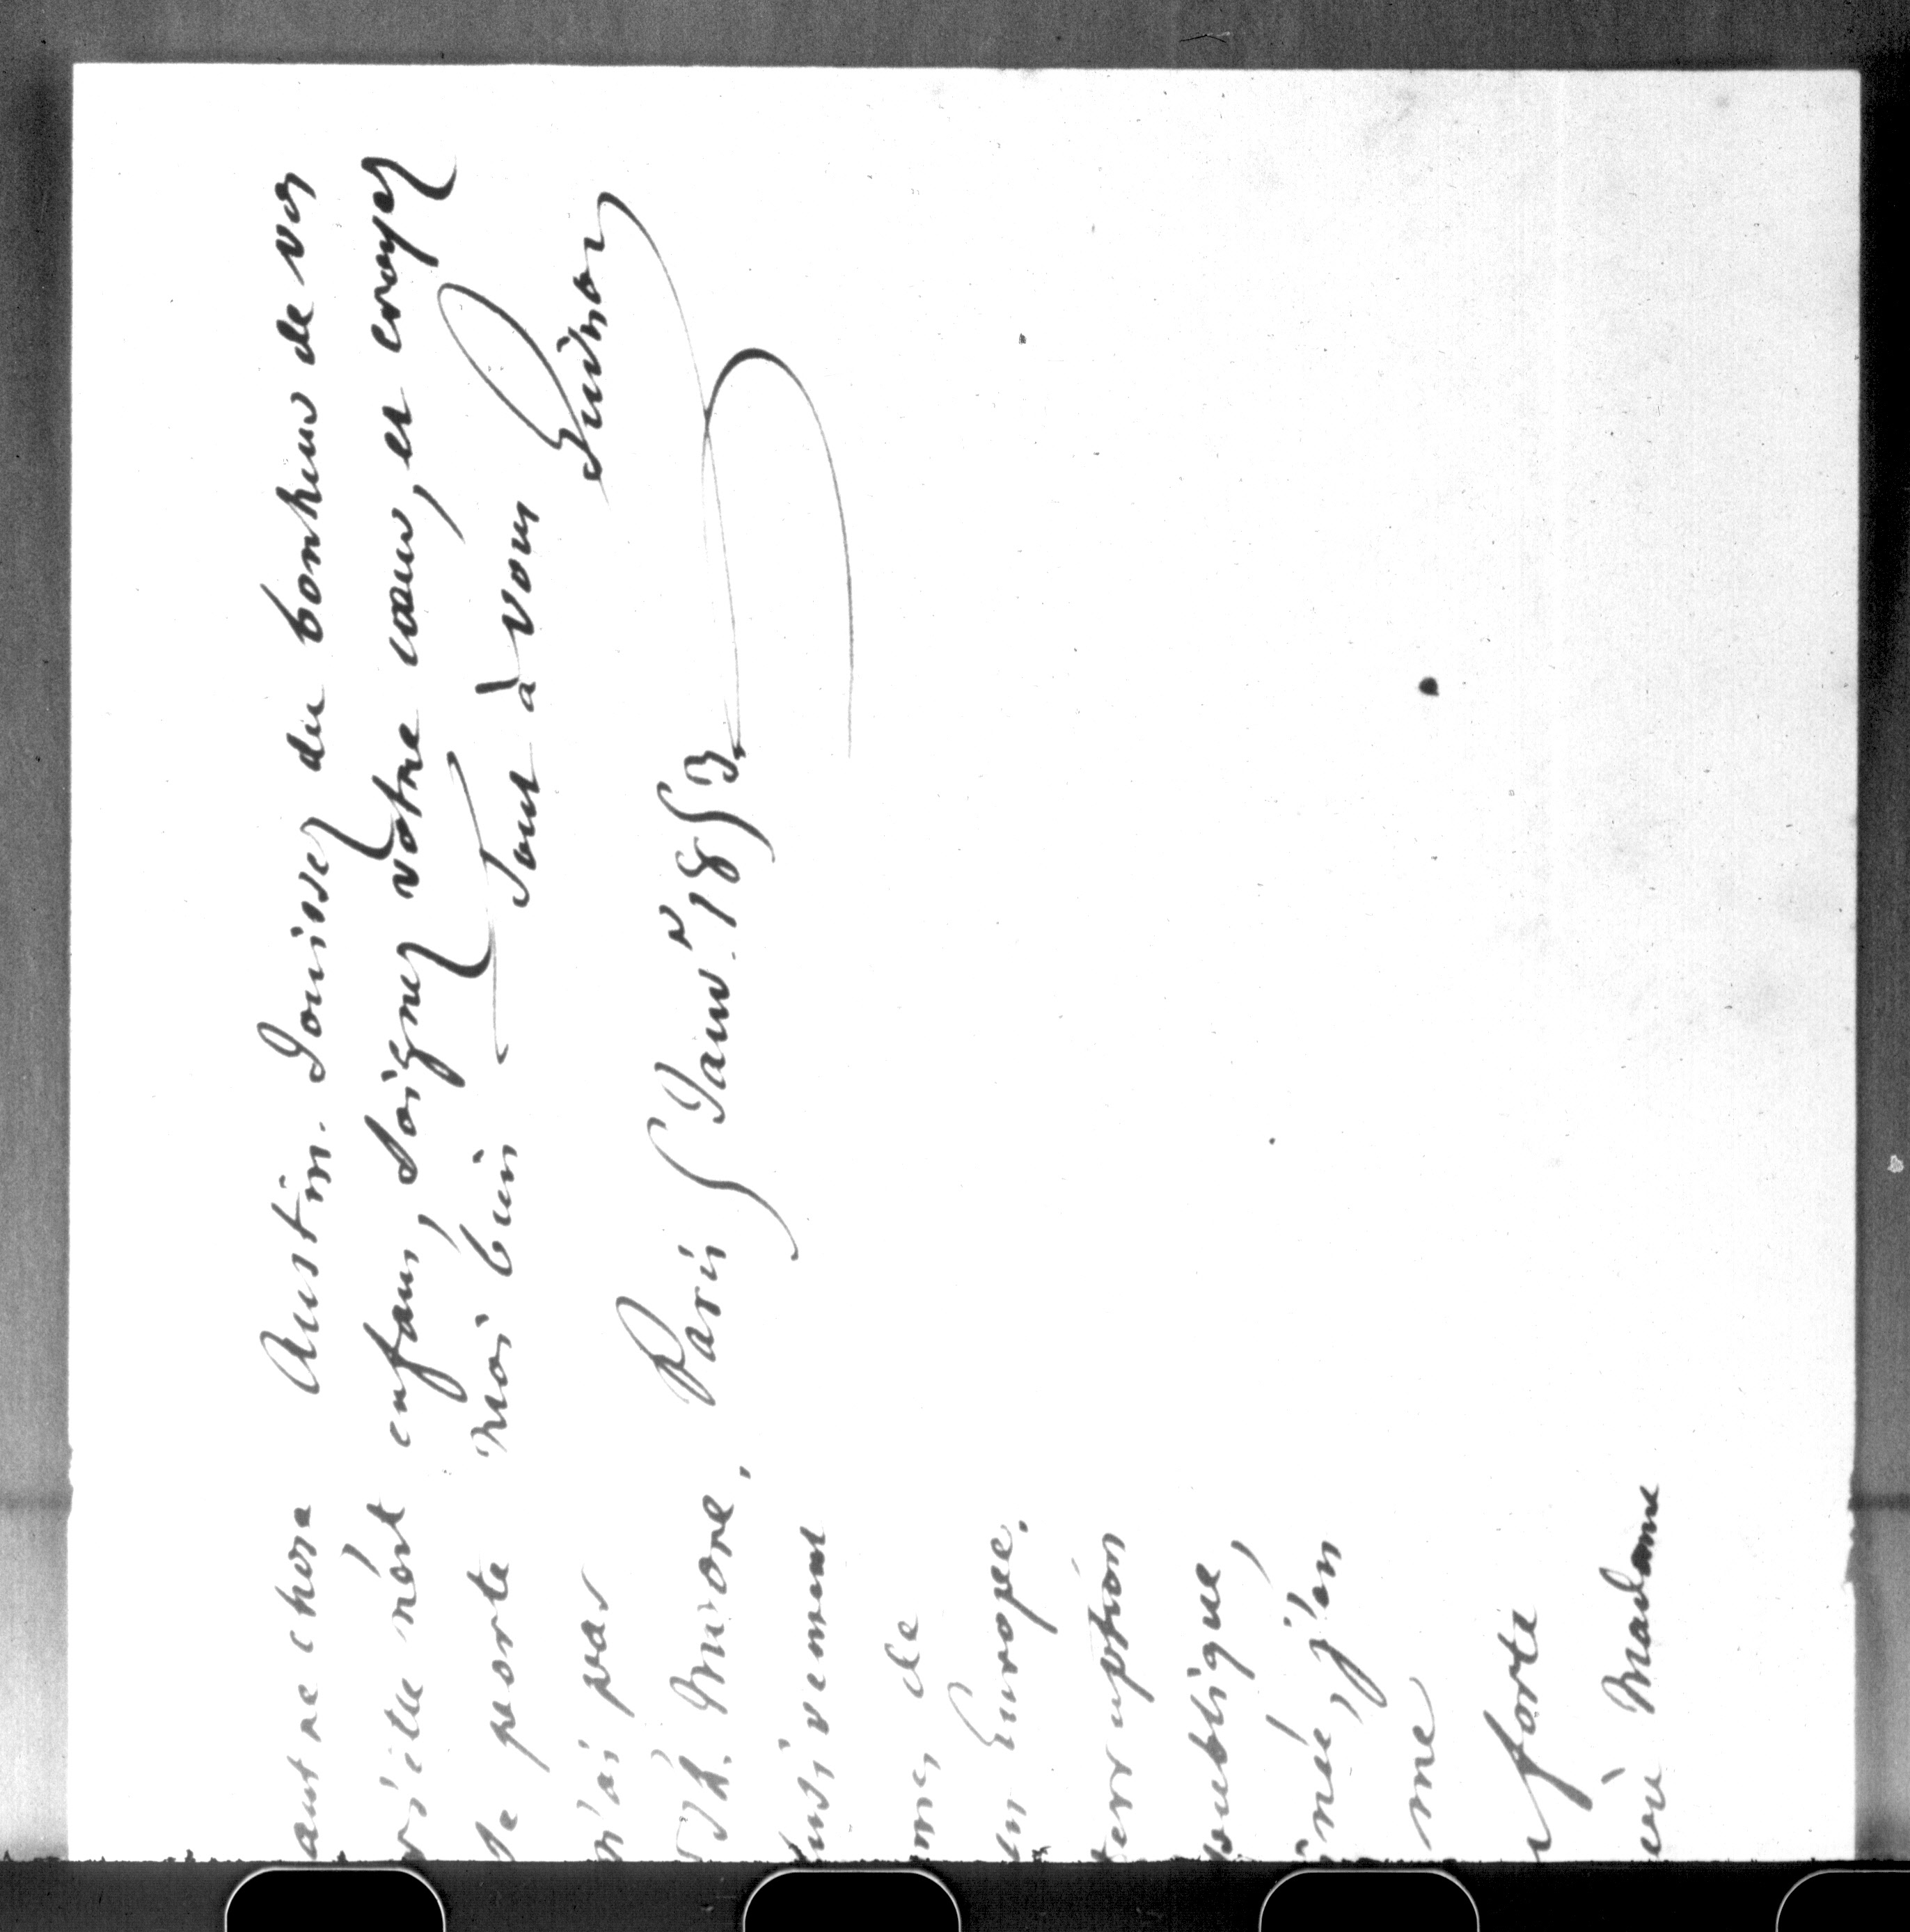 autre chose
si elle n'est
se porte
n'ai pas
Th. Moore,
ney de
en Europe.
publique,
j'en
me
forte
où Madame
Austin. Jouissez du bonheur de vos
enfans, soignez votre cœur, et croyez
moi bien
Tout à vous
Guizot
Paris 5 Janvr. 1853